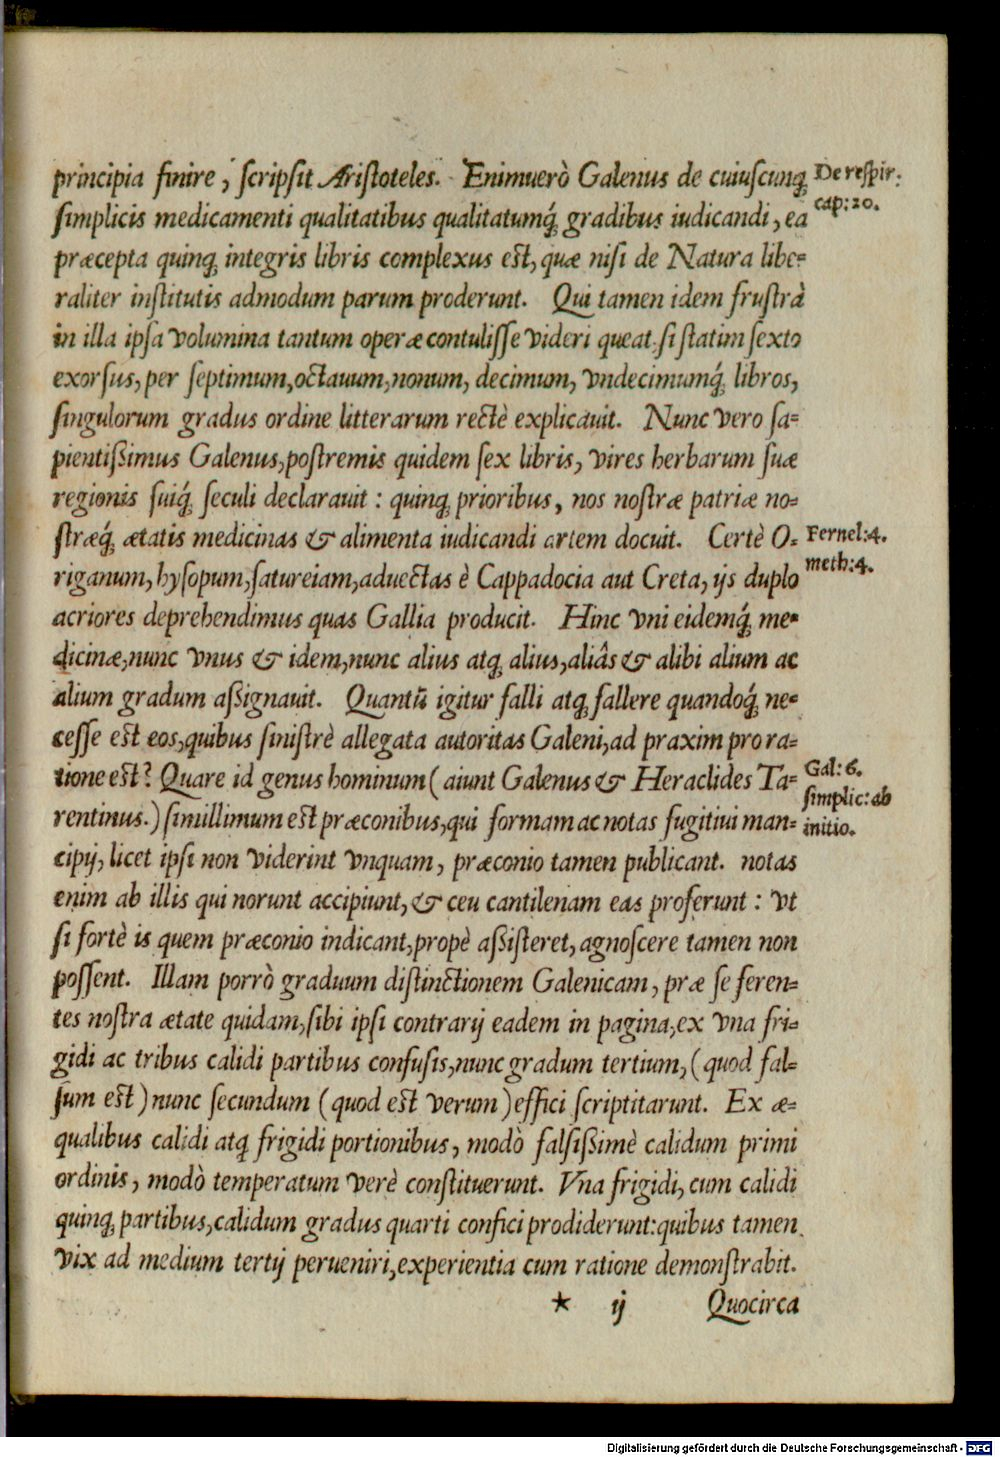 principia finire, ſcripſit Ariſtoteles. Enimuerò Galenus de cuiuſcunq́; De reſpir:
ſimplicis medicamenti qualitatibus qualitatumq́; gradibus iudicandi, ea cap: 20.
præcepta quinq; integris libris complexus eſt, quæ niſi de Natura libe=
raliter inſtitutis admodum parum proderunt. Qui tamen idem fruſtrà
in illa ipſa volumina tantum operæ contuliſſe videri queat. ſi ſtatim ſexto
exorſus, per ſeptimum, octauum, nonum, decimum, vndecimumq́; libros,
ſingulorum gradus ordine litterarum rectè explicauit. Nunc vero ſa=
pientiſſimus Galenus, poſtremis quidem ſex libris, vires herbarum ſuæ
regionis ſuiq́; ſeculi declarauit : quinq; prioribus, nos noſtræ patriæ no=
ſtræq́; ætatis medicinas & alimenta iudicandi artem docuit. Certè O= Fernel: 4.
riganum, hyſopum, ſatureiam, aduectas è Cappadocia aut Creta, ijs duplo meth: 4.
acriores deprehendimus quas Gallia producit. Hinc vni eidemq́; me=
dicinæ, nunc vnus & idem, nunc alius atq; alius, aliâs & alibi alium ac
alium gradum aſſignauit. Quantū igitur falli atq; fallere quandoq́; ne=
ceſſe eſt eos, quibus ſiniſtrè allegata autoritas Galeni, ad praxim pro ra=
tione eſt? Quare id genus hominum (aiunt Galenus & Heraclides Ta= Gal: 6.
rentinus.) ſimillimum eſt præconibus, qui formam ac notas fugitiui man= ſimplic: ab
cipij, licet ipſi non viderint vnquam, præconio tamen publicant. notas initio.
enim ab illis qui norunt accipiunt, & ceu cantilenam eas proferunt : vt
ſi fortè is quem præconio indicant, propè aſſiſteret, agnoſcere tamen non
poſſent. Illam porrò graduum diſtinctionem Galenicam, præ ſe feren=
tes noſtra ætate quidam, ſibi ipſi contrarij eadem in pagina, ex vna fri=
gidi ac tribus calidi partibus confuſis, nunc gradum tertium, (quod fal=
ſum eſt) nunc ſecundum (quod eſt verum) effici ſcriptitarunt. Ex æ=
qualibus calidi atq; frigidi portionibus, modò falſiſſimè calidum primi
ordinis, modò temperatum verè conſtituerunt. Vna frigidi, cum calidi
quinq; partibus, calidum gradus quarti confici prodiderunt: quibus tamen
vix ad medium tertij perueniri, experientia cum ratione demonſtrabit.
★ ij Quocirca
Digitalisierung gefördert durch die Deutsche Forschungsgemeinschaft - DFG